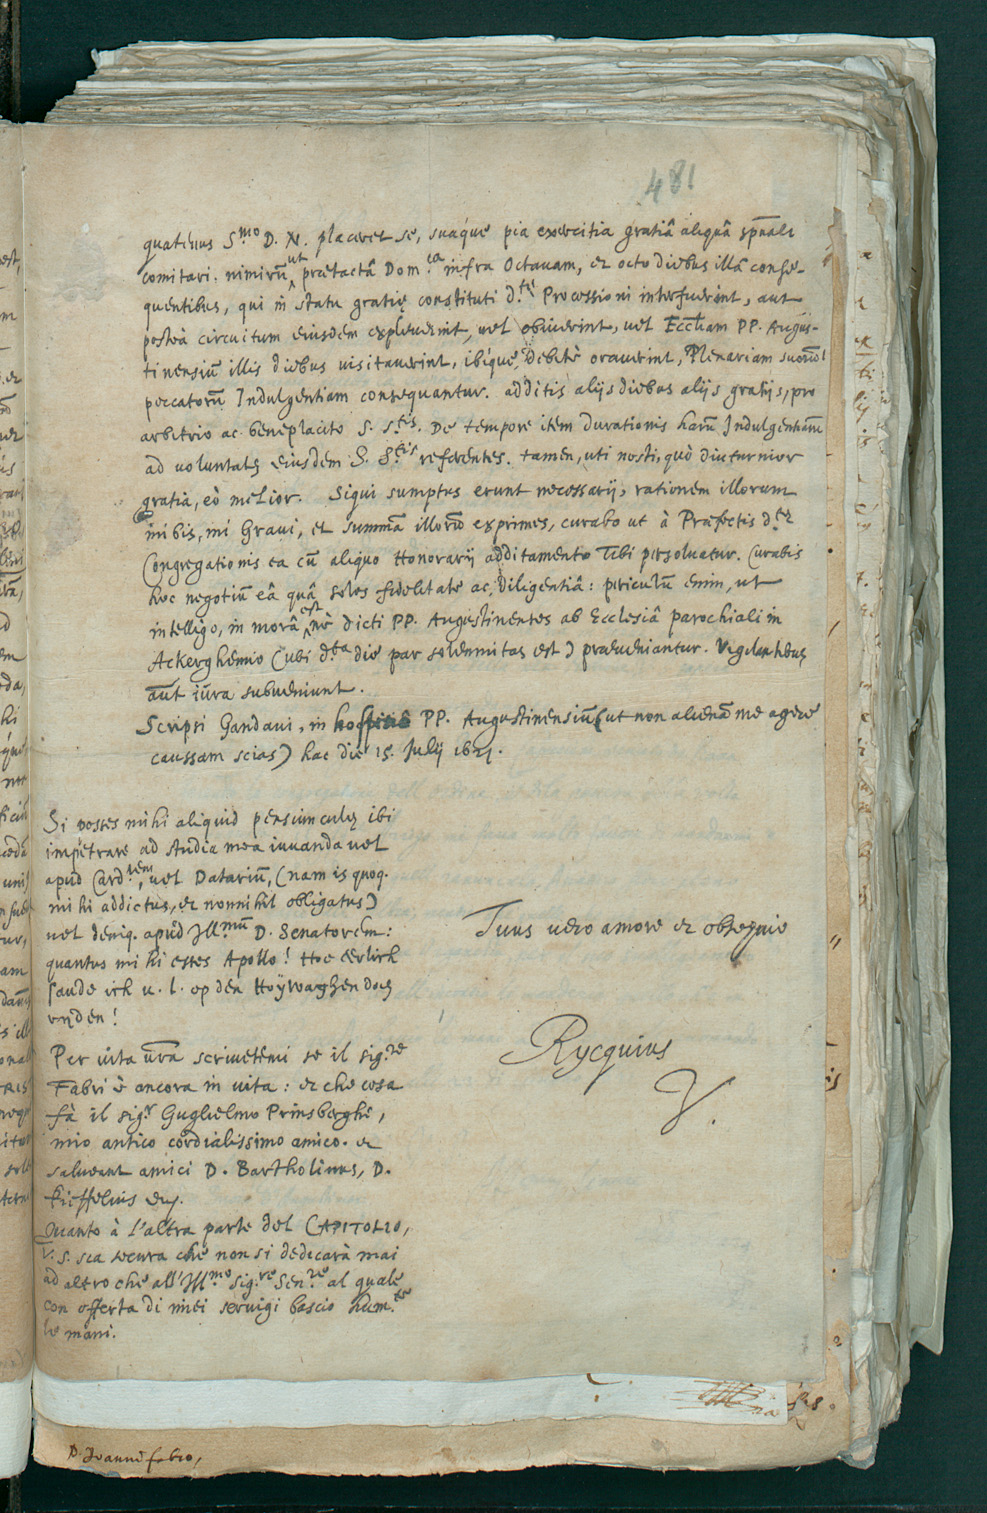 481
quatenus S.mo D. N. placeret se, suaque pia exercitia gratiâ aliquâ spuali
comitari. nimirũ ut prætactâ Dom.ca infra Octavam, et octo diebus illã conse-
quentibus, qui in statu gratię constituti d.tę Processioni interfuerint, aut
posteà circuitum eiusdem expleuerint, uel obiuerint, uel Eccliam PP. Augus-
tinensiũ illis diebus uisitauerint, ibíque debitè orauerint, Plenariam suorũ
peccatorũ Indulgentiam consequantur. additis alijs diebus alijs gratijs, pro
arbitrio ac beneplacito S. S.tis. De tempore item durationis harũ Indulgentiarũ
ad uoluntatẽ eiusdem S. S.tis referentes. tamen, uti nosti, quò diuturnior
gratia, eò melior. Siqui sumptus erunt necessarij, rationem illorum
inibis, mi Graui, et summã illorũ exprimes, curabo ut à Præfectis d.tę
Congregationis ea cũ aliquo Honorarij additamento Tibi persoluatur. Curabis
hoc negotiũ eâ quâ soles fidelitate ac diligentiâ: periculũ enim, ut
intelligo, in morâ est, nè dicti PP. Augustinenses ab Ecclesiâ parochiali in
Ackerghemio (ubi d.ta die par solemnitas est) præueniantur. Vigilantibus
aũt iũra subueniunt.
Scripsi Gandaui, in hospitio PP. Augustinensiũ (ut non alienã me agere
caussam scias) hac die 15. Julij 1621.
Si posses mihi aliquid pensiunculę ibi
impetrare ad studia mea iuuanda uel
apud Card.lem, uel Datariũ, (nam is quoq.
mihi addictus, et nonnihil obligatus)
uel deniq. apud Ill.mũ D. Senatorem:
quantus mihi esses Apollo! Hoe eerlick
saude ick u. l. op den Hoÿwaghen doen
rijden!
Tuus uero amore et obsequio
Rycquius
V.
Per uita ũra scriuetemi se il sig.re
Fabri è ancora in uita: et che cosa
fà il sig.r Guglielmo Prinsberghe,
mio antico cordialissimo amico. et
salueant amici D. Bartholinus, D.
Kieffelius etc.
Quanto à l'altra parte del CAPITOLIO,
V. S. sia secura che non si dedicarà mai
ad altro che all'Ill.mo sig.re Sen.re al quale
con offerta di miei seruigi bascio hum.te
le mani.
D. Joanni fabro,